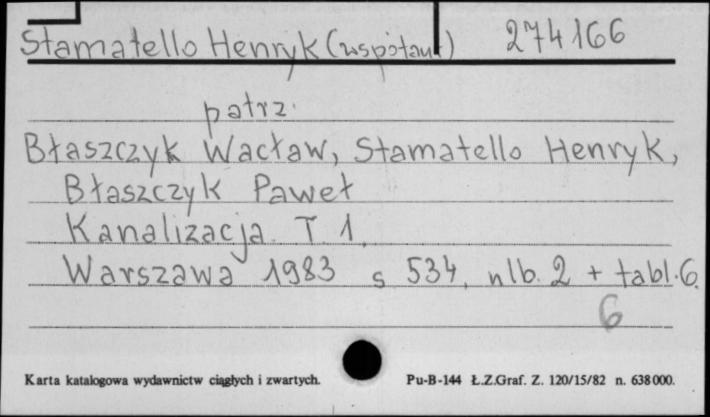 Stamatello Henryk (współaut) 274166
patrz.
Błaszczyk Wacław, Stamatello Henryk,
Błaszczyk Paweł
Kanalizacja. T 1.
Warszawa 1983 s 534, nlb. 2 + tabl. 6.
6
Karta katalogowa wydawnictw ciągłych i zwartych. Pu-B-144 Ł.Z.Graf. Z. 120/15/82 n. 638000.